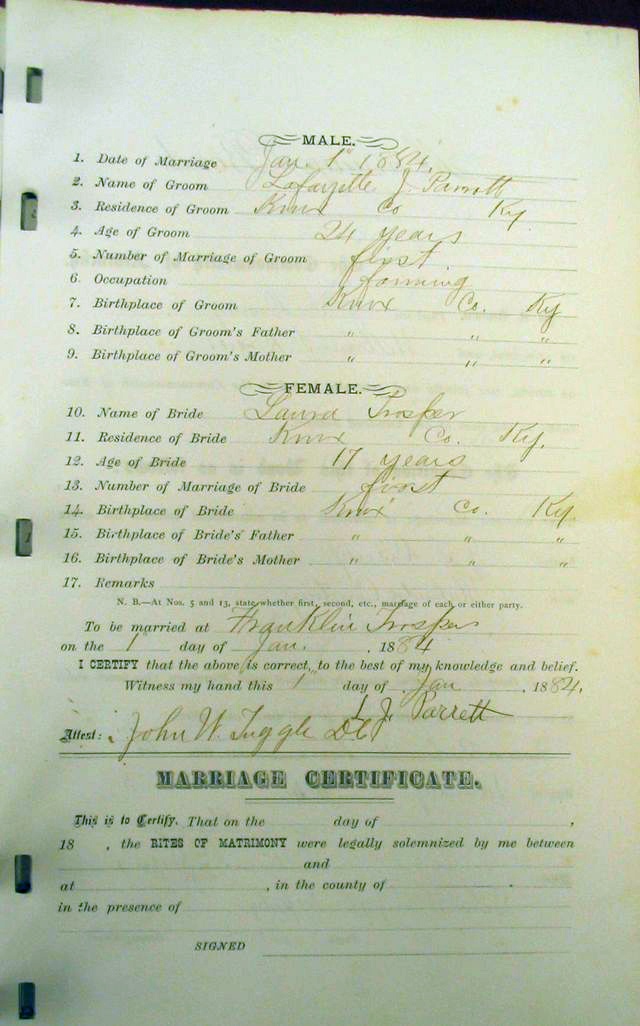 MALE.
1. Date of Marriage Jan. 1st 1884.
2. Name of Groom Lafayette J. Parrott
3. Residence of Groom Knox Co Ky
4. Age of Groom 24 years
5. Number of Marriage of Groom first
6. Occupation farming
7. Birthplace of Groom Knox Co. Ky
8. Birthplace of Groom's Father " " "
9. Birthplace of Groom's Mother " " "
FEMALE.
10. Name of Bride Laura Trosper
11. Residence of Bride Knox Co. Ky.
12. Age of Bride 17 years
13. Number of Marriage of Bride first
14. Birthplace of Bride Knox Co. Ky.
15. Birthplace of Bride's Father " " "
16. Birthplace of Bride's Mother " " "
17. Remarks
N. B.—At Nos. 5 and 13, state whether first, second, etc., marriage of each or either party.
To be married at Franklin Trospers
on the 1 day of Jan. , 1884
I CERTIFY that the above is correct, to the best of my knowledge and belief.
Witness my hand this 1" day of Jan , 1884.
L J. Parrett
Attest: John W. Tuggle DC
MARRIAGE CERTIFICATE.
This is to Certify, That on the day of ,
18 , the RITES OF MATRIMONY were legally solemnized by me between
and
at , in the county of .
in the presence of
SIGNED